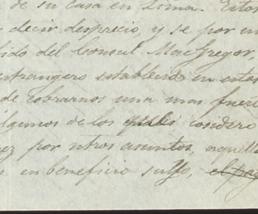 de su casa en Lima. Estos
decir desprecio, y se por un
dido del Consul MacGregor,
extrangero establecido en estos
de cobrarnos una mas fuerte
algunos de los quales
vez por otros asuntos, aquell
en beneficio suyo, el pag